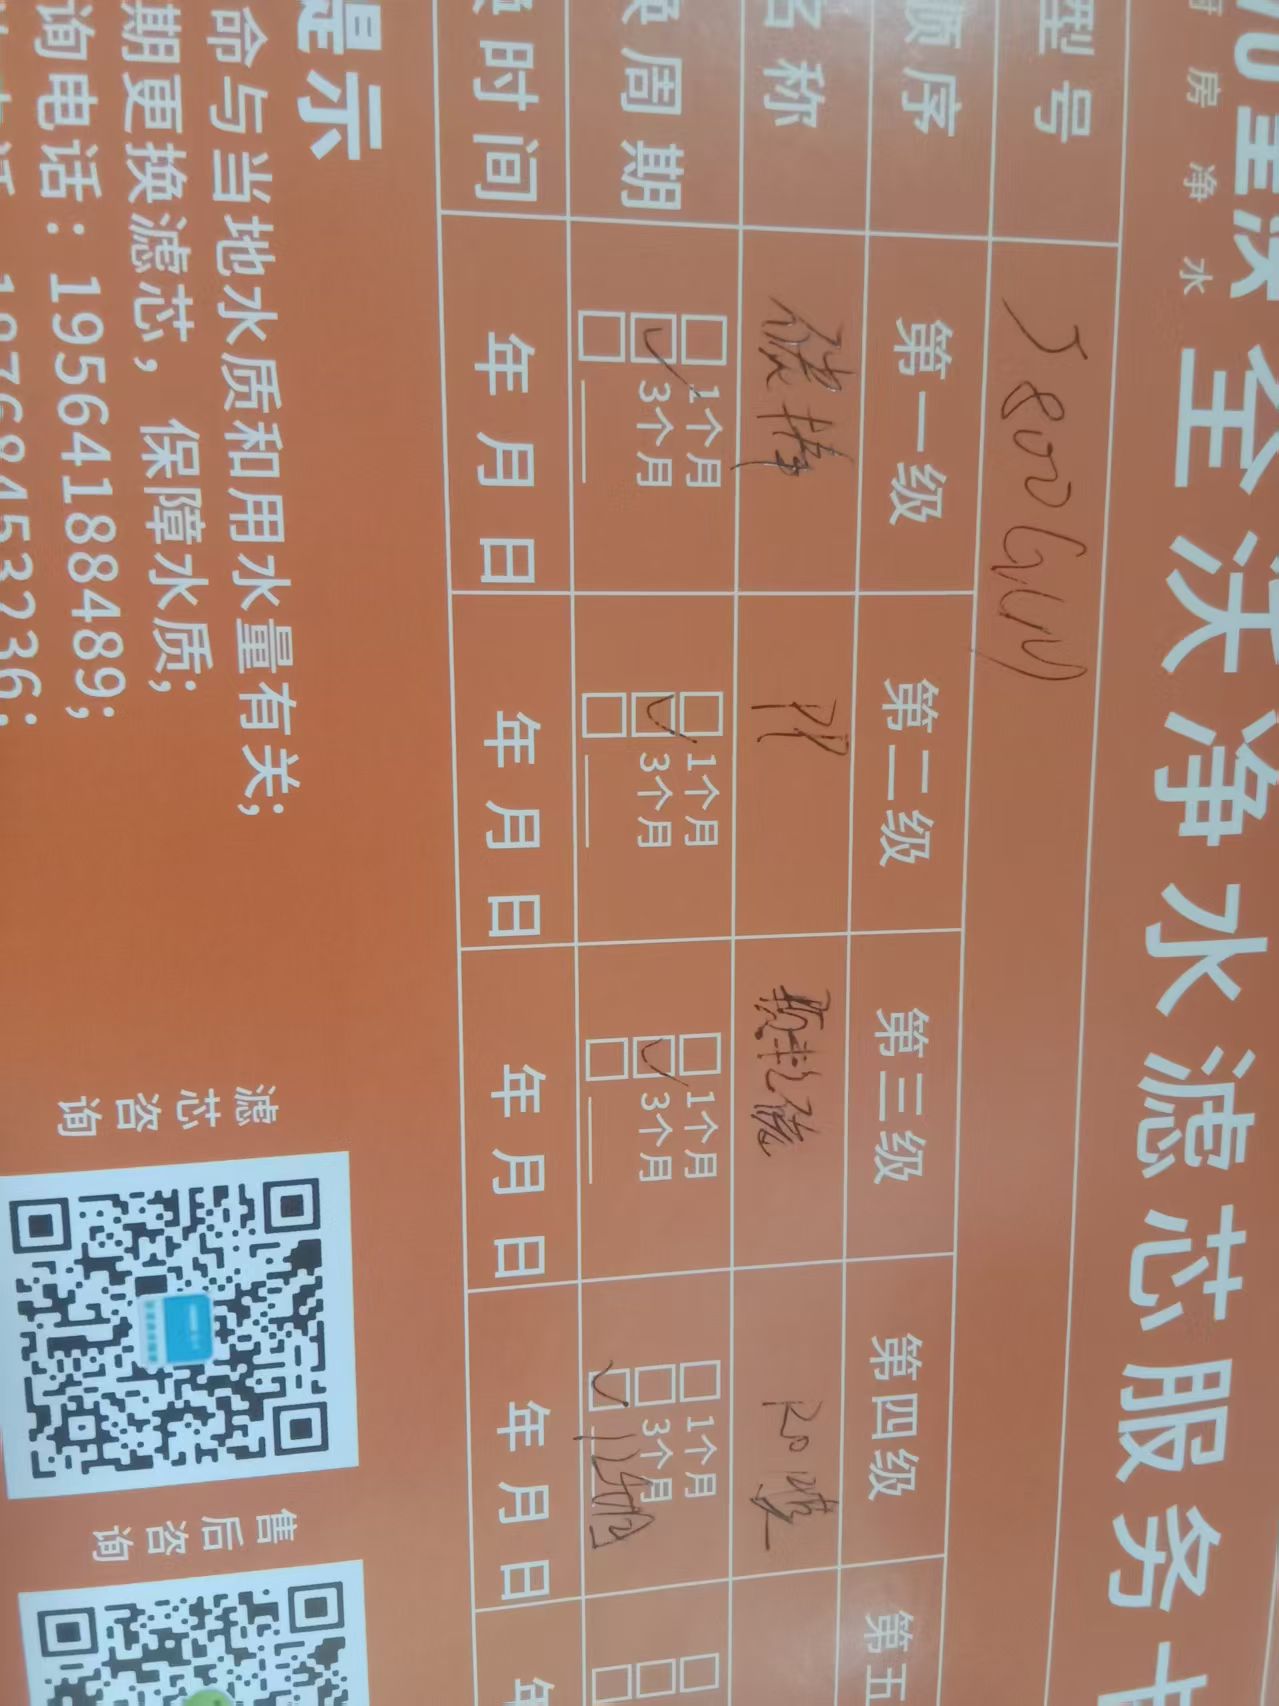 全沃净水滤芯服务卡
房净水
型号 J800GUM
顺序 第一级 第二级 第三级 第四级 第五
名称 碳棒 PP 颗粒碳 RO膜
周期 1个月 1个月 1个月 1个月
3个月 3个月 3个月 3个月
12个月
时间 年 月 日 年 月 日 年 月 日 年 月 日 年
提示
命与当地水质和用水量有关;
期更换滤芯,保障水质;
询电话:19564188489;
18768453236;
滤芯咨询
售后咨询